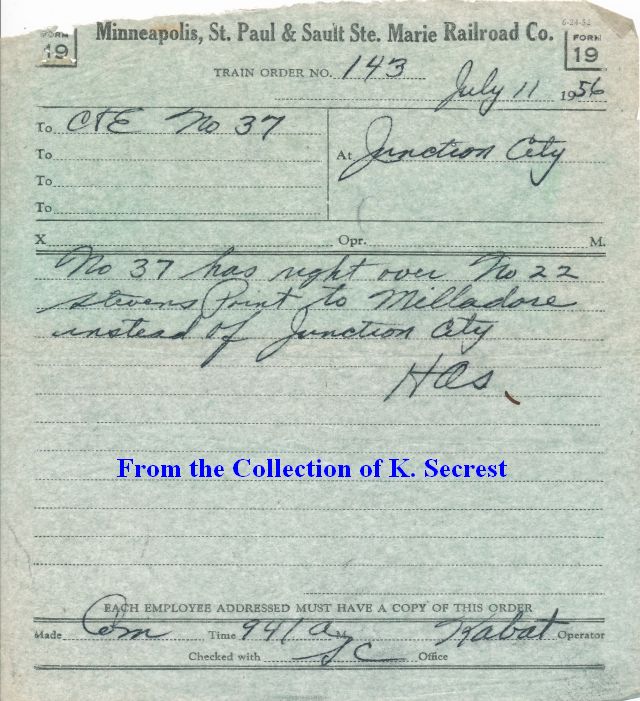 6-24-52
FORM 19
Minneapolis, St. Paul & Sault Ste. Marie Railroad Co.
FORM 19
TRAIN ORDER NO. 143
July 11 1956
To C&E No 37
At Junction City
To
To
To
X Opr. M.
No 37 has right over No 22
Stevens Point to Milladore
instead of Junction City
HOS
From the Collection of K. Secrest
EACH EMPLOYEE ADDRESSED MUST HAVE A COPY OF THIS ORDER
Made Com Time 941 a M Kabat Operator
Checked with JC Office